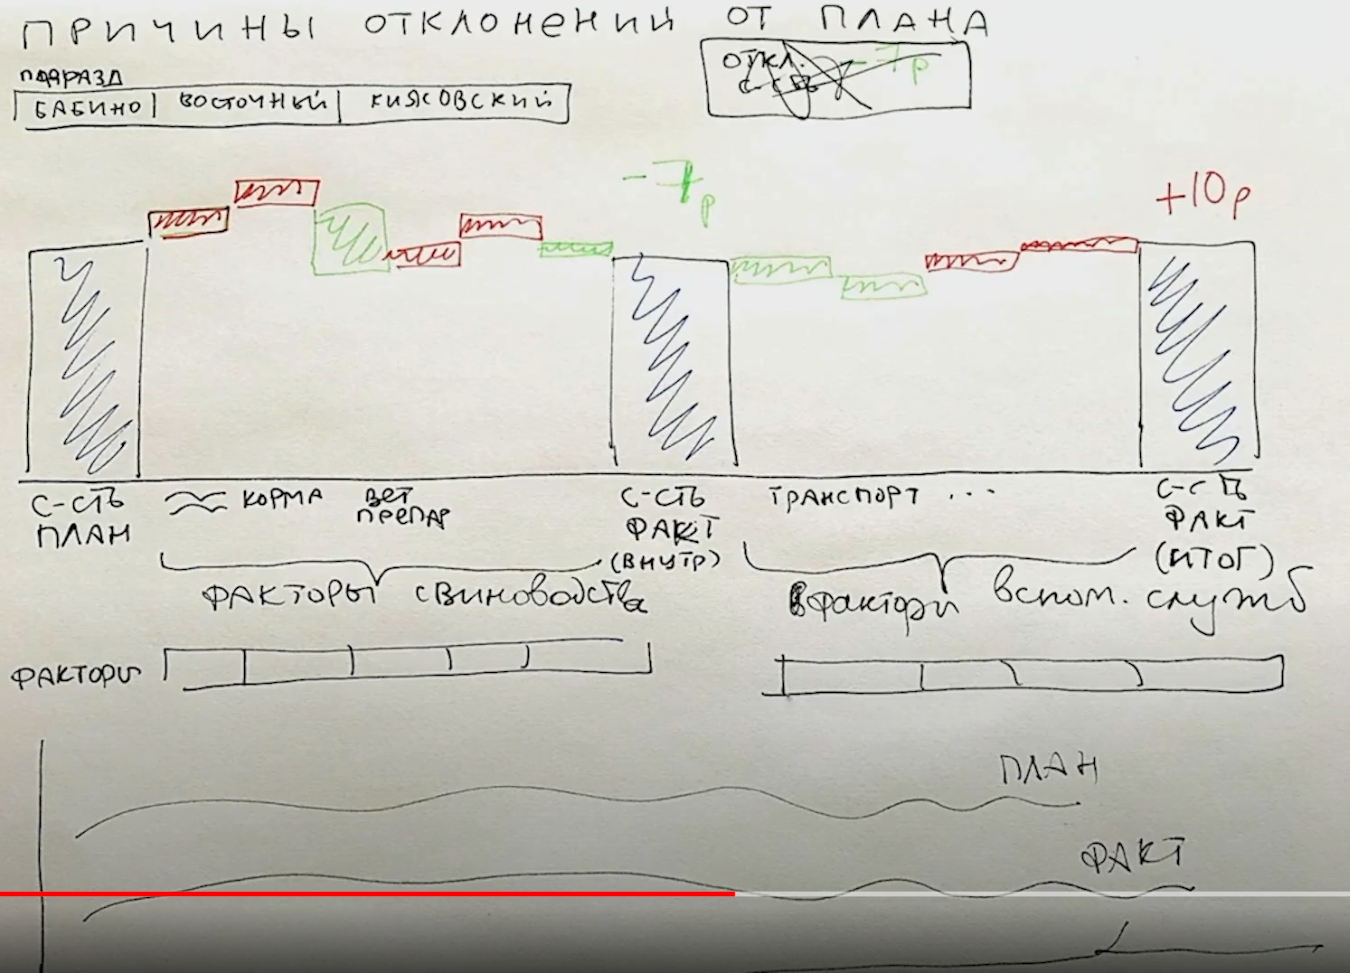 ПРИЧИНЫ ОТКЛОНЕНИЙ ОТ ПЛАНА
ПОДРАЗД
БАБИНО ВОСТОЧНЫЙ КИЯСОВСКИЙ
ОТКЛ. -7р
С-СТЬ
-7р
+10р
С-СТЬ ПЛАН
КОРМА
ВЕТ ПРЕПАР
С-СТЬ ФАКТ (ВНУТР)
ТРАНСПОРТ ...
С-СТЬ ФАКТ (ИТОГ)
ФАКТОРЫ свиноводства
факторы вспом. служб
ФАКТОРЫ
ПЛАН
ФАКТ